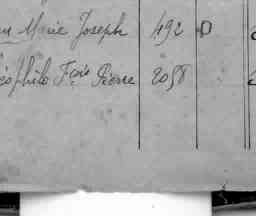 Marie Joseph 492 D
éophile Fçois Pierre 2058